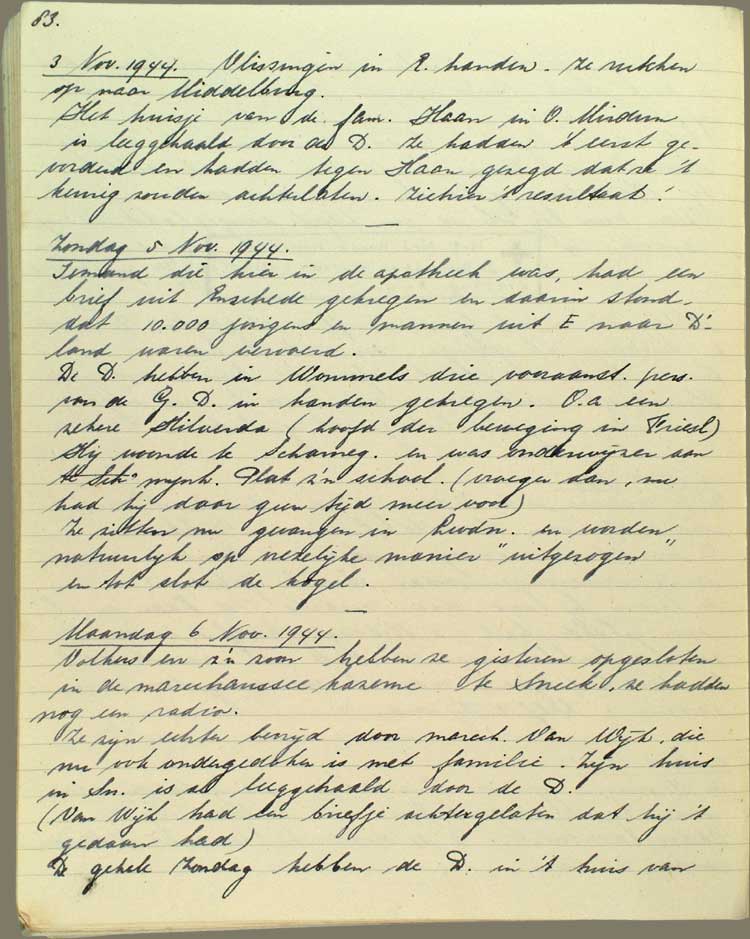 83.
3 Nov. 1944. Vlissingen in E. handen. Ze rukken
op naar Middelburg.
Het huisje van de fam. Haan in O. Mirdum
is leeggehaald door de D. Ze hadden 't eerst ge-
vorderd en hadden tegen Haan gezegd dat ze 't
keurig zouden achterlaten. Ziehier 't resultaat!
Zondag 5 Nov. 1944.
Iemand die hier in de apotheek was, had een
brief uit Enschede gekregen en daarin stond,
dat 10.000 jongens en mannen uit E naar D'-
land waren vervoerd.
De D. hebben in Wommels drie vooraanst. pers.
van de G. D. in handen gekregen. O.a een
zekere Hilverda (hoofd der beweging in Friesl)
Hij woonde te Scharneg. en was onderwijzer aan
mynh. Plat z'n school. (vroeger dan, nu
had hij daar geen tijd meer voor)
Ze zitten nu gevangen in Lwdn. en worden
natuurlyk op vreselijke manier "uitgezogen"
en tot slot de kogel.
Maandag 6 Nov. 1944.
Volkers en z'n zoon hebben ze gisteren opgesloten
in de marechaussee kazerne te Sneek, ze hadden
nog een radio.
Ze zijn echter bevrijd door marech. Van Wijk, die
nu ook ondergedoken is met familie. Zijn huis
in Sn. is al leeggehaald door de D.
(Van Wijk had een briefje achtergelaten dat hij 't
gedaan had)
De gehele Zondag hebben de D. in 't huis van